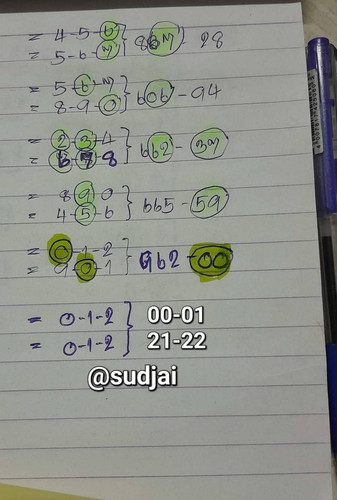 = 4-5-6
= 5-6-7 } 837 - 28
= 5-6-7
= 8-9-0 } 606 - 94
= 2-3-4
= 6-7-8 } 662 - 37
= 8 9 0
= 4-5-6 } 665 - 59
= 0-1-2
= 9-0-1 } 962 - 00
= 0-1-2 } 00-01
= 0-1-2 21-22
@sudjai